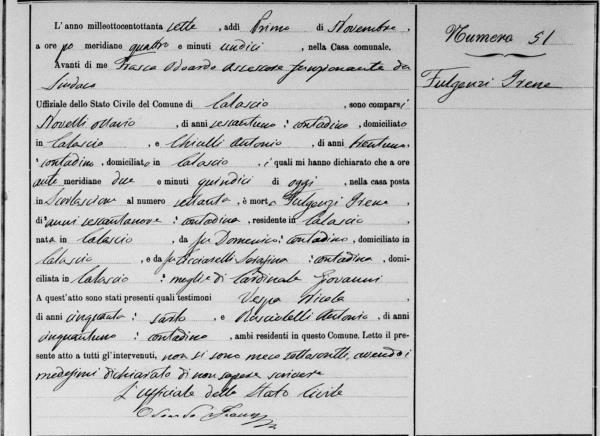 L'anno milleottocentottanta sette, addì Primo di Novembre,
a ore po meridiane quattro e minuti undici, nella Casa comunale.
Avanti di me Frasca Odoardo Assessore funzionante da
Sindaco
Uffiziale dello Stato Civile del Comune di Calascio, sono comparsi
Novelli Ottavio, di anni sessantuno: contadino, domiciliato
in Calascio, e Chiulli Antonio, di anni trentuno:
contadino, domiciliato in Calascio, i quali mi hanno dichiarato che a ore
ante meridiane due e minuti quindici di oggi, nella casa posta
in al numero settanta, è morta Fulgenzi Irene
di anni sessantanove: contadina, residente in Calascio,
nata in Calascio, da fu Domenico: contadino, domiciliato in
Calascio, e da fu Serafina: contadina, domi-
ciliata in Calascio: moglie di Cardinale Giovanni
A quest'atto sono stati presenti quali testimoni Vespa Nicola,
di anni cinquanta: sarto, e Antonio, di anni
cinquantuno: contadino, ambi residenti in questo Comune. Letto il pre-
sente atto a tutti gl'intervenuti, non si sono meco sottoscritti, avendo i
medesimi dichiarato di non sapere scrivere
L'uffiziale dello Stato Civile
Numero 51
Fulgenzi Irene